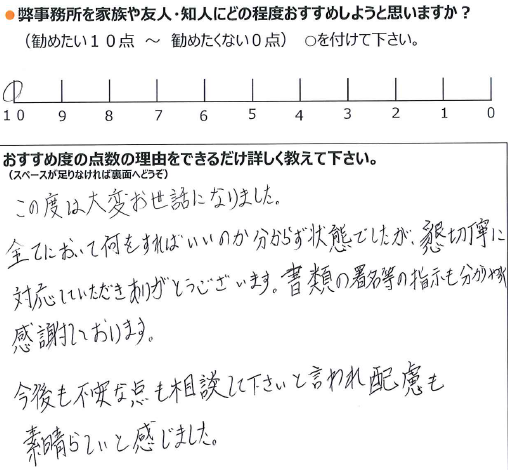 ●弊事務所を家族や友人・知人にどの程度おすすめしようと思いますか？
（勧めたい１０点　～　勧めたくない０点）　○を付けて下さい。
10 9 8 7 6 5 4 3 2 1 0
おすすめ度の点数の理由をできるだけ詳しく教えて下さい。
（スペースが足りなければ裏面へどうぞ）
この度は大変お世話になりました。
全てにおいて何をすればいいのか分からず状態でしたが、懇切丁寧に
対応していただきありがとうございます。書類の署名等の指示も分かりやすく
感謝しております。
今後も不安な点も相談して下さいと言われ配慮も
素晴らしいと感じました。